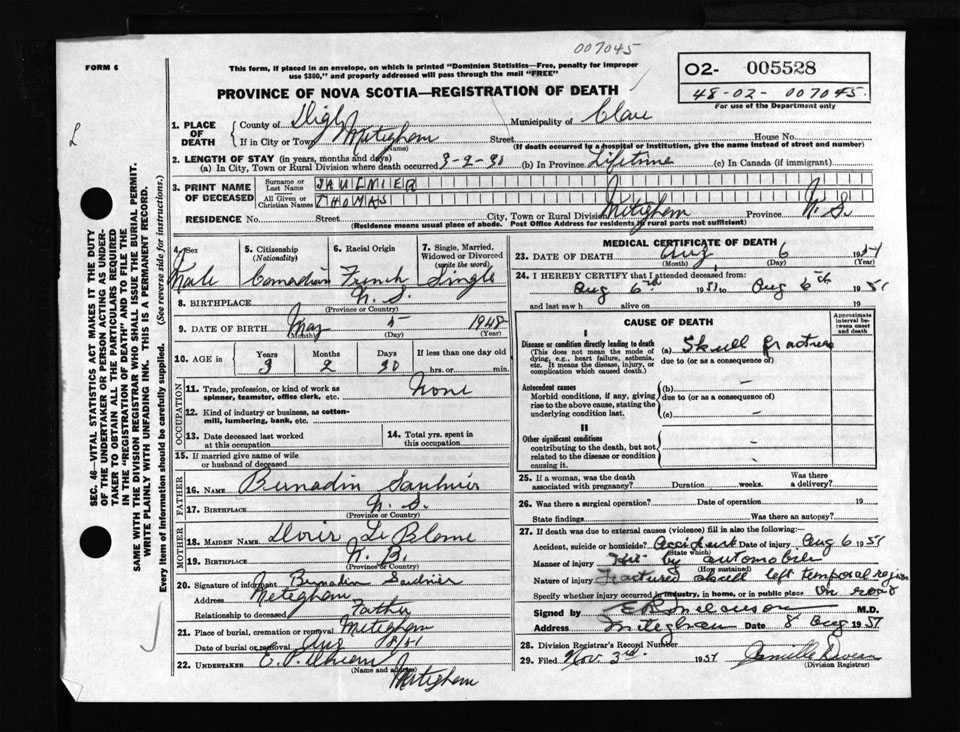 007045
FORM 6
This form, if placed in an envelope, on which is printed "Dominion Statistics—Free, penalty for improper
use $300," and properly addressed will pass through the mail "FREE"
O2- 005528
48-02- 007045.
For use of the Department only
PROVINCE OF NOVA SCOTIA—REGISTRATION OF DEATH
1. PLACE OF DEATH { County of Digby Municipality of Clare
If in City or Town Meteghan Street House No.
(Name) (If death occurred in a hospital or institution, give the name instead of street and number)
2. LENGTH OF STAY (in years, months and days)
(a) In City, Town or Rural Division where death occurred 3-2-30 (b) In Province Lifetime (c) In Canada (if immigrant)
3. PRINT NAME OF DECEASED { Surname or Last Name SAULNIER
All Given or Christian Names THOMAS
RESIDENCE No. Street City, Town or Rural Division Meteghan Province N. S.
(Residence means usual place of abode. Post Office Address for residents in rural parts not sufficient)
4. Sex 5. Citizenship (Nationality) 6. Racial Origin 7. Single, Married, Widowed or Divorced (write the word)
Male Canadian French Single
8. BIRTHPLACE N. S.
(Province or Country)
9. DATE OF BIRTH May 5 1948
(Month) (Day) (Year)
10. AGE in Years Months Days If less than one day old
3 2 30 hrs. or min.
OCCUPATION
11. Trade, profession, or kind of work as
spinner, teamster, office clerk, etc. None
12. Kind of industry or business, as cotton-
mill, lumbering, bank, etc.
13. Date deceased last worked
at this occupation
14. Total yrs. spent in
this occupation
15. If married give name of wife
or husband of deceased
FATHER
16. NAME Bernadin Saulnier
17. BIRTHPLACE N. S.
(Province or Country)
MOTHER
18. MAIDEN NAME Doris Le Blanc
19. BIRTHPLACE N. B.
(Province or Country)
20. Signature of informant Bernadin Saulnier
Address Meteghan
Relationship to deceased Father
21. Place of burial, cremation or removal Meteghan
Date of burial or removal Aug 8/51
22. UNDERTAKER E. P.
(Name and address)
Meteghan
MEDICAL CERTIFICATE OF DEATH
23. DATE OF DEATH Aug 6 1951
(Month) (Day) (Year)
24. I HEREBY CERTIFY that I attended deceased from:
Aug 6th 1951 to Aug 6th 1951
and last saw h alive on 19
CAUSE OF DEATH
Approximate interval between onset and death
I
Disease or condition directly leading to death (a) Skull fracture
(This does not mean the mode of due to (or as a consequence of)
dying, e.g., heart failure, asthenia,
etc. It means the disease, injury, or
complication which caused death.)
Antecedent causes (b) —
Morbid conditions, if any, giving due to (or as a consequence of)
rise to the above cause, stating the
underlying condition last. (c) —
II
Other significant conditions
contributing to the death, but not
related to the disease or condition
causing it. —
25. If a woman, was the death
associated with pregnancy? Duration weeks. Was there
a delivery?
26. Was there a surgical operation? Date of operation 19
State findings Was there an autopsy?
27. If death was due to external causes (violence) fill in also the following:—
Accident, suicide or homicide? Accident Date of injury Aug 6 1951
(State which)
Manner of injury Hit by automobile
(How sustained)
Nature of injury Fractured skull left temporal region
Specify whether injury occurred in industry, in home, or in public place On road
Signed by M.D.
Address Meteghan Date 8 Aug 1951
28. Division Registrar's Record Number
29. Filed Nov. 3rd. 1951
(Division Registrar)
SEC. 46—VITAL STATISTICS ACT MAKES IT THE DUTY
OF THE UNDERTAKER OR PERSON ACTING AS UNDER-
TAKER TO OBTAIN ALL THE PARTICULARS REQUIRED
IN THE "REGISTRATION OF DEATH" AND TO FILE THE
SAME WITH THE DIVISION REGISTRAR WHO SHALL ISSUE THE BURIAL PERMIT.
WRITE PLAINLY WITH UNFADING INK. THIS IS A PERMANENT RECORD.
Every item of Information should be carefully supplied. (See reverse side for instructions.)